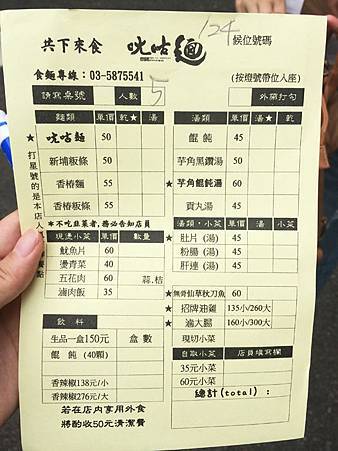 124
共下來食 咣咕麵 候位號碼
食麵專線：03-5875541 (按燈號帶位入座)
請寫桌號 人數 5 外開打勾
麵類 單價 乾★ 湯
★ 咣咕麵 50
新埔粄條 50
香椿麵 55
香椿粄條 55
＊不吃韭菜者,務必告知店員
★打星號的是本店人
現燙小菜 單價 數量
魷魚片 60
燙青菜 40
五花肉 60 蒜.桔
滷肉飯 35
飲料
生品一盒150元 盒數
餛飩 (40顆)
香辣椒138元/小
香辣椒276元/大
若在店內享用外食
將酌收50元清潔費
湯類 單價 乾 湯
餛飩 45
芋角黑鑽湯 50
★ 芋角餛飩湯 60
貢丸湯 45
湯類．小菜 單價 湯 小菜
★ 肚片 (湯) 45
粉腸 (湯) 45
肝連 (湯) 45
★無骨仙草秋刀魚 60
★ 招牌油雞 135小/260大
★ 滷大腸 160小/300大
現切小菜
自取小菜 店員填寫欄
35元小菜
60元小菜
總計(total)：